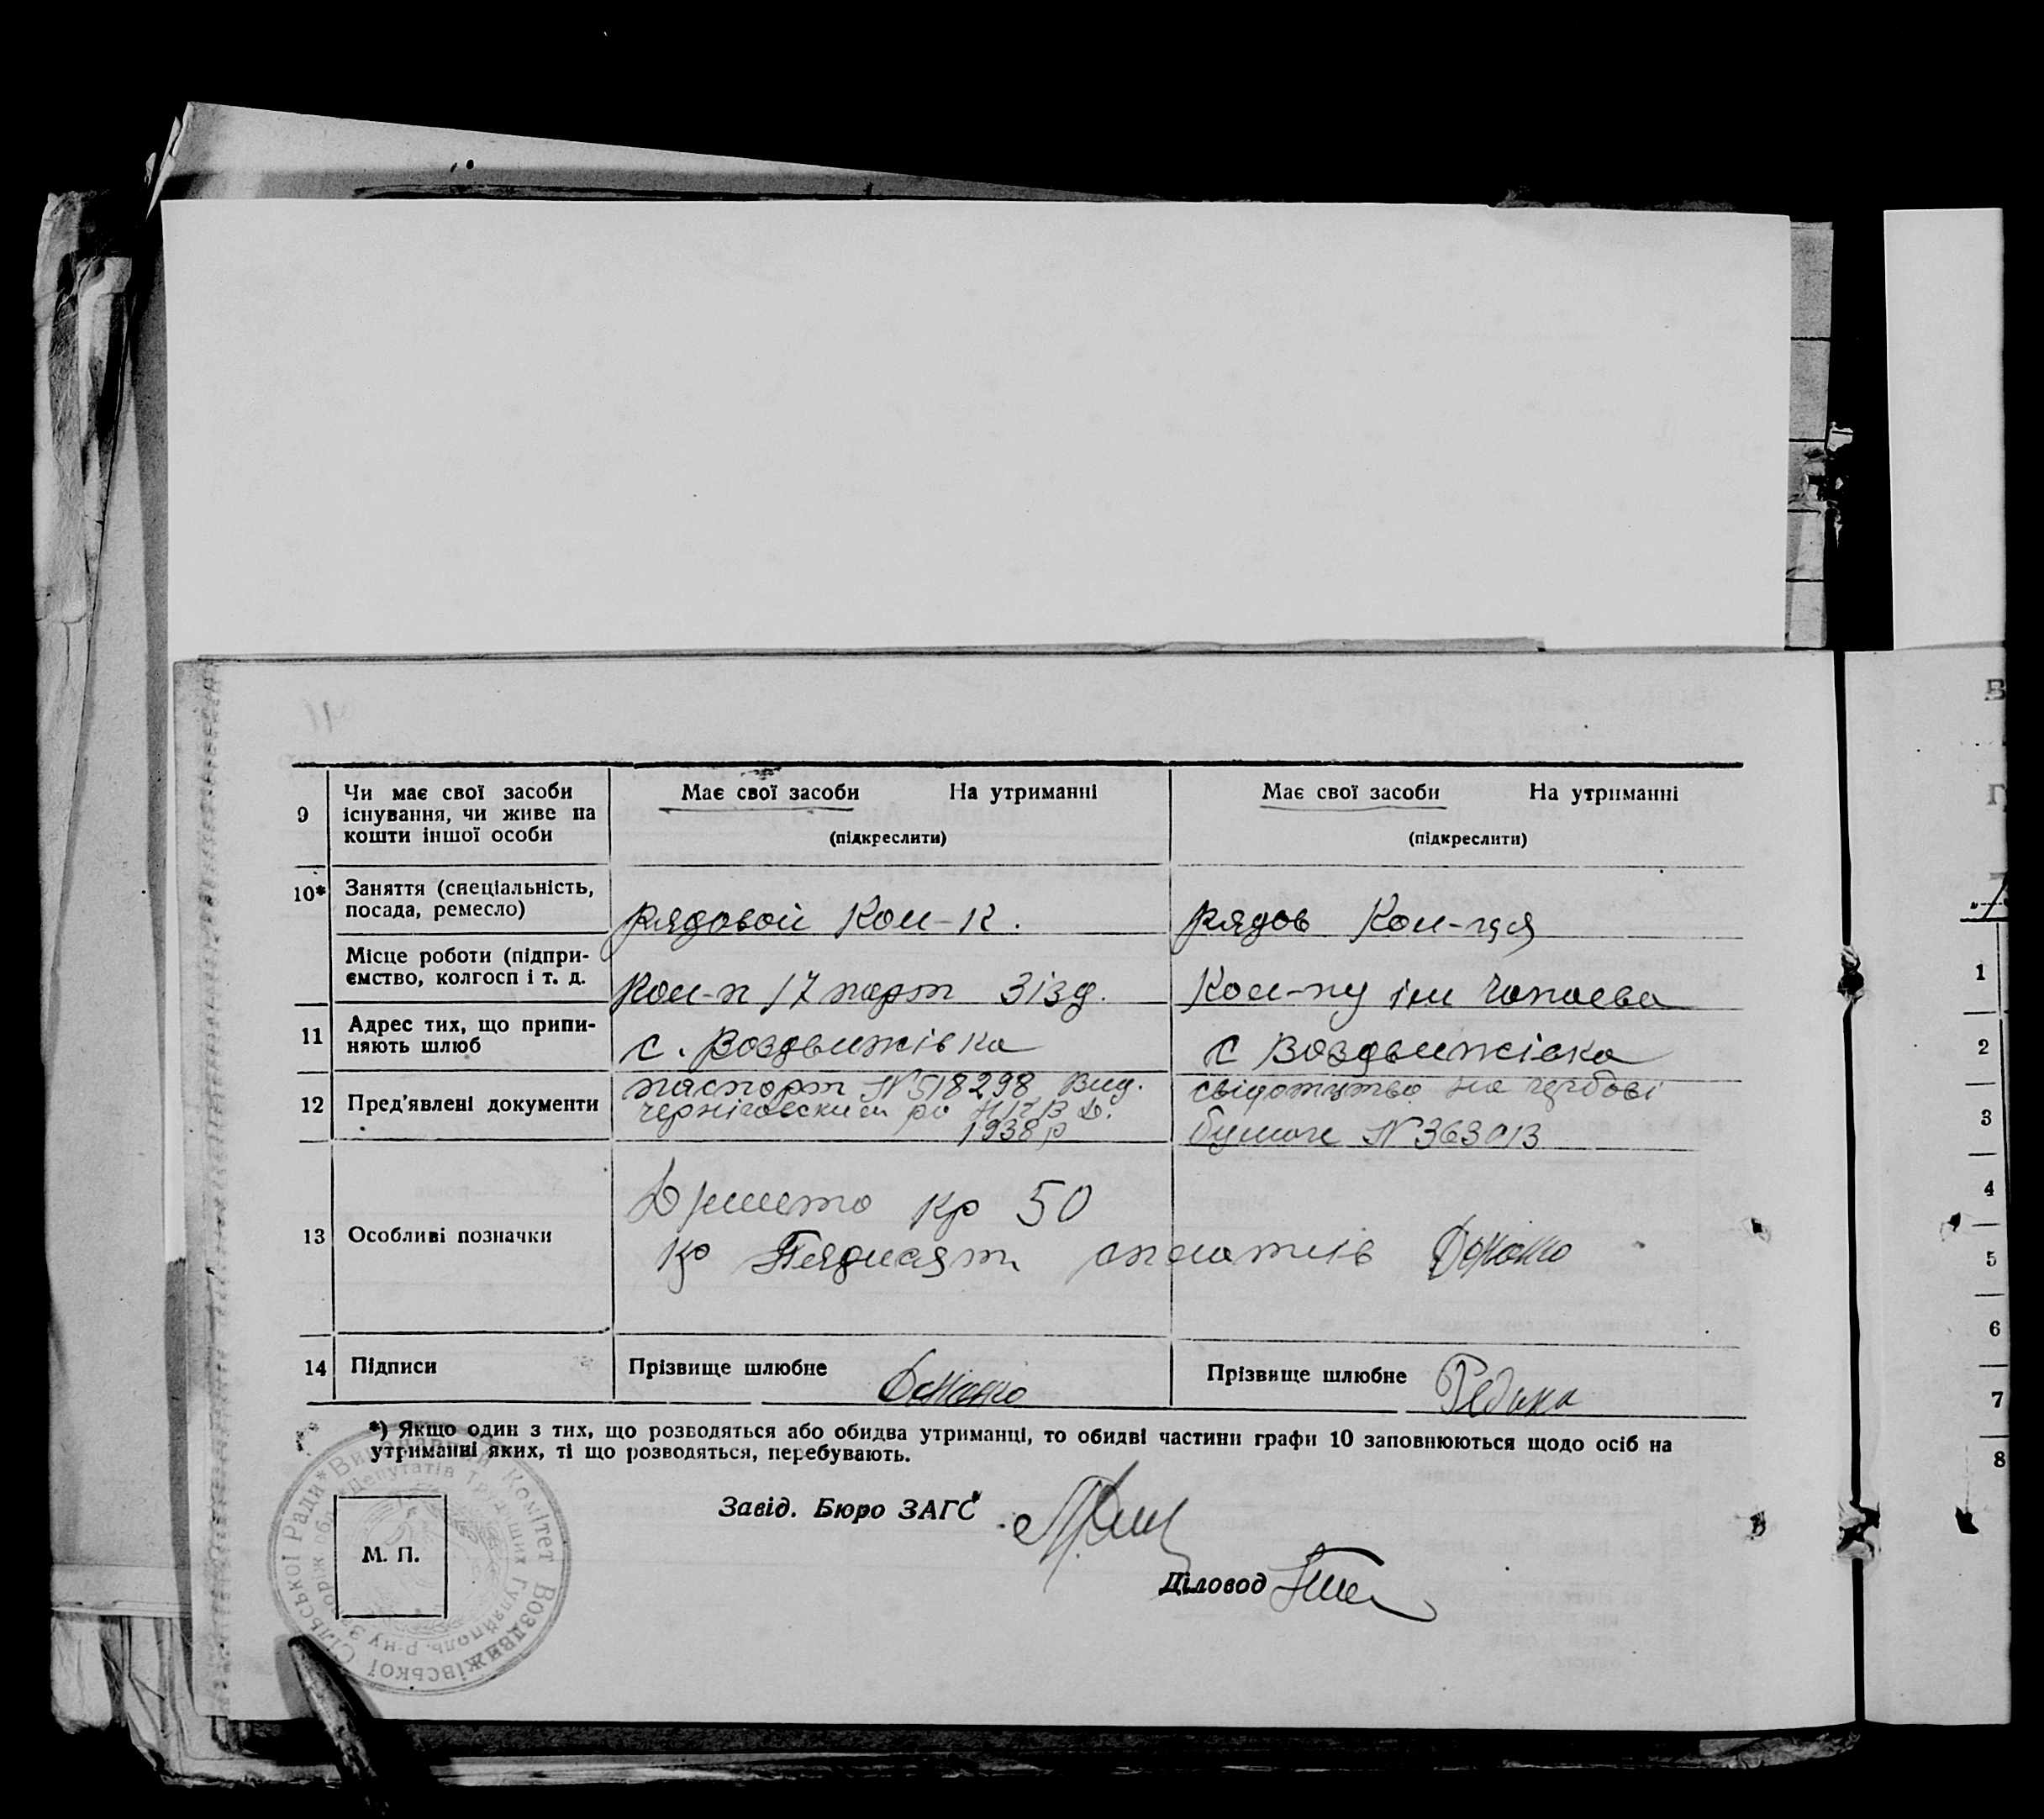 9
Чи має свої засоби
існування, чи живе на
кошти іншої особи
Має свої засоби На утриманні
(підкреслити)
Має свої засоби На утриманні
(підкреслити)
10*
Заняття (спеціальність,
посада, ремесло)
рядовой Кол-к.
рядов Кол-ця
Місце роботи (підпри-
ємство, колгосп і т. д.
Кол-п 17 парт зізд.
Кол-пу ім Чапаева
11
Адрес тих, що припи-
няють шлюб
с. Воздвижівка
с Воздвижівка
12
Пред'явлені документи
паспорт N 518298 Вид.
черніговским ро НКВД.
1938 р
свідотцтво на
N 363013
13
Особливі позначки
кр 50
кр
14
Підписи
Прізвище шлюбне
Прізвище шлюбне Редька
*) Якщо один з тих, що розводяться або обидва утриманці, то обидві частини графи 10 заповнюються щодо осіб на
утриманні яких, ті що розводяться, перебувають.
Завід. Бюро ЗАГС
Діловод
М. П.
Виконавчий Комітет Воздвижівської Сільської Ради
Депутатів Трудящих Гуляйполь. р-ну
1
2
3
4
5
6
7
8